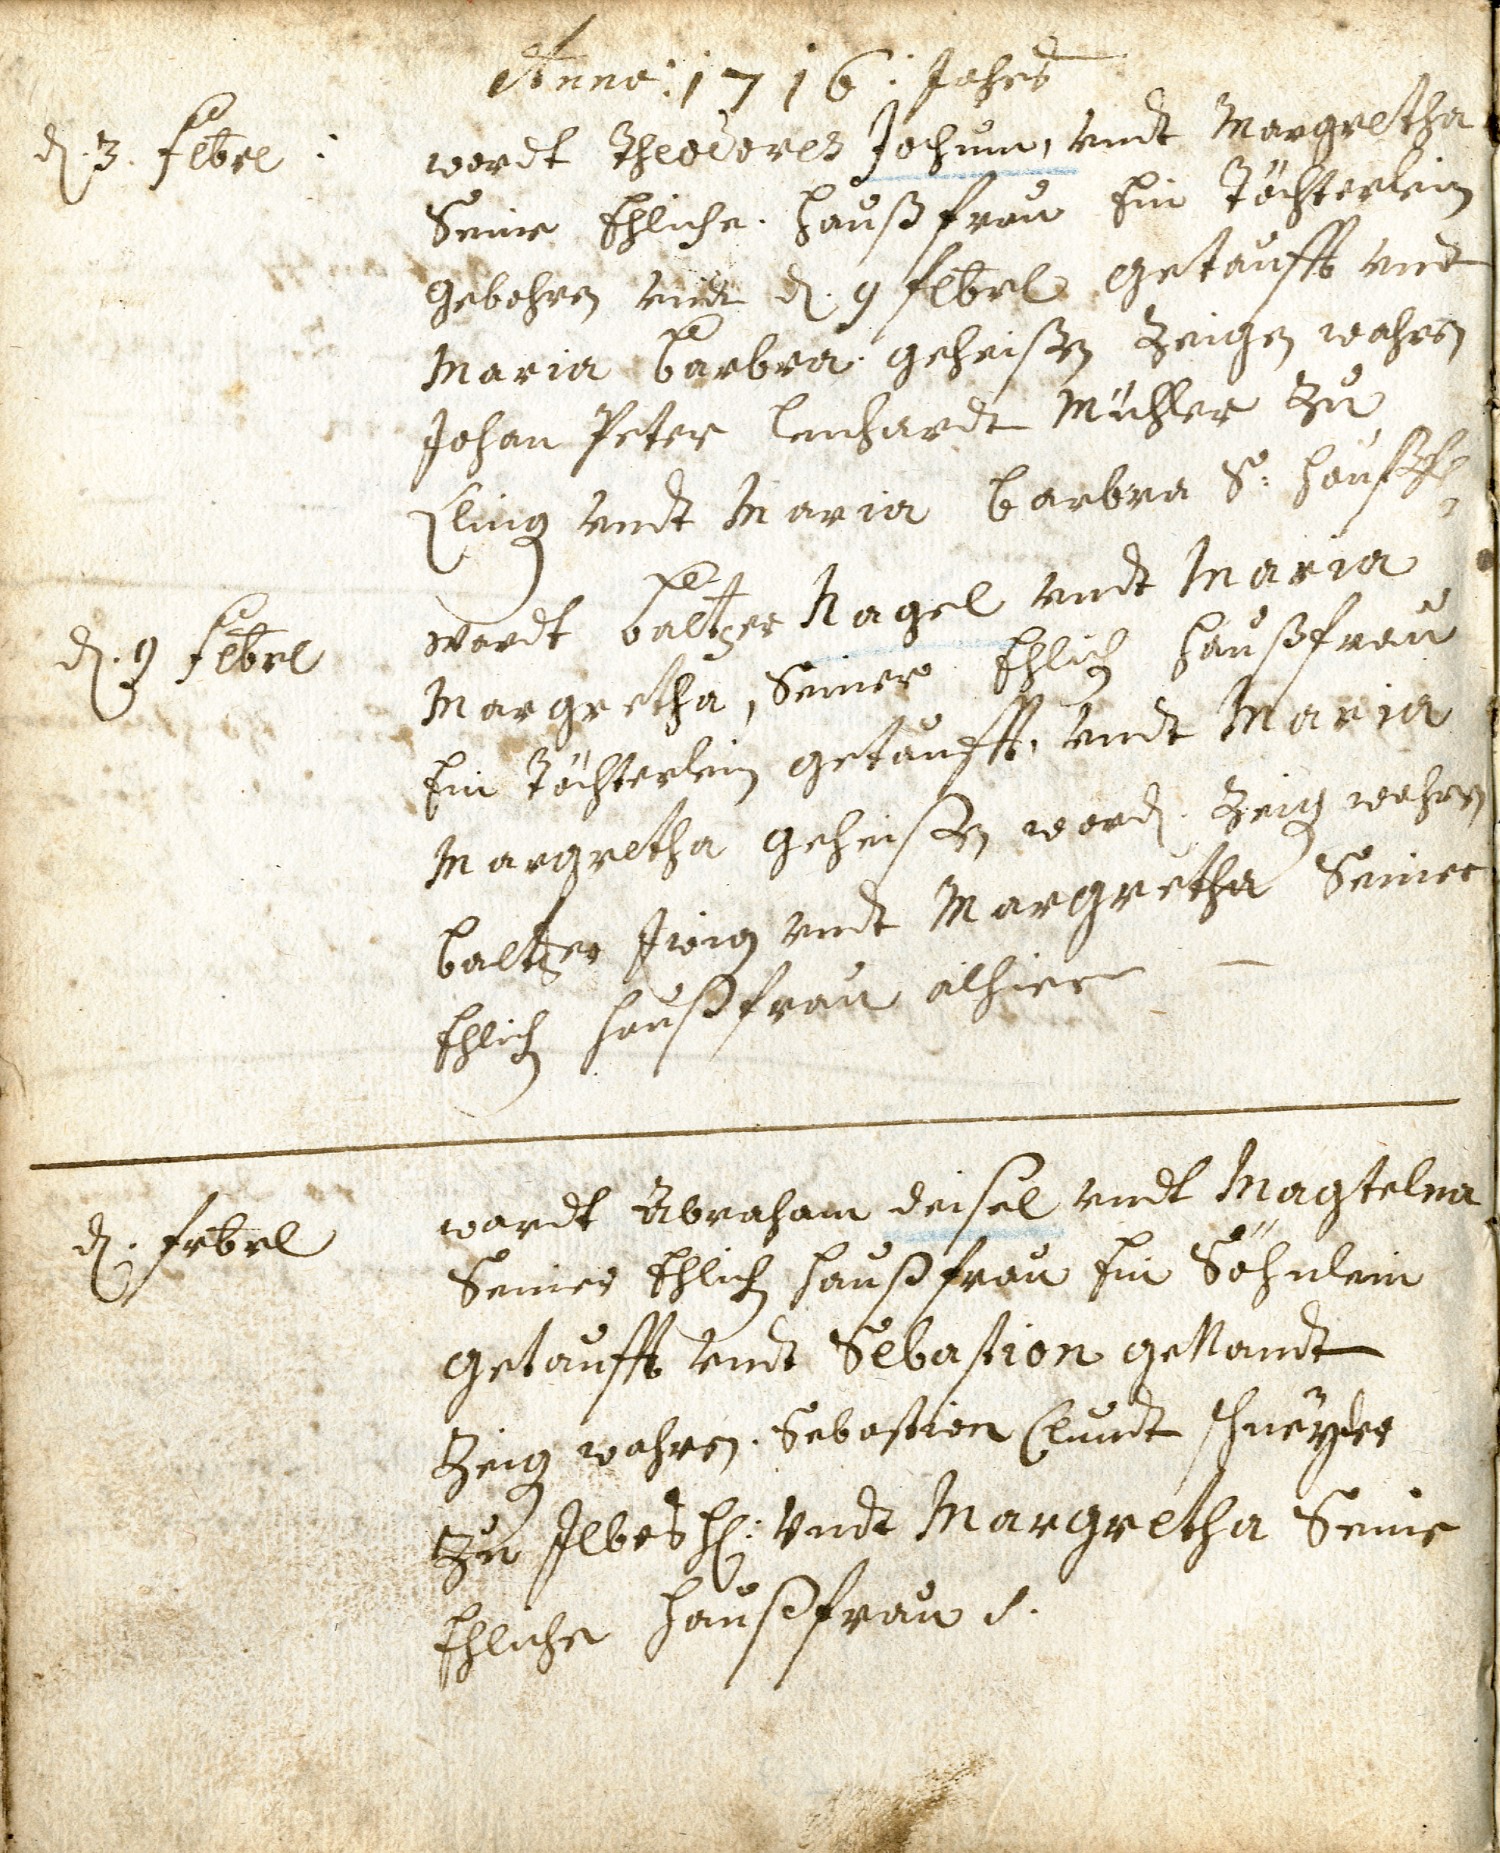 Anno: 1716: Jahrs
d. 3. Febrl: wordt Theodorus Jochum, undt Margretha
Seine Ehliche haußfrau Ein Töchterlein
gebohren undt d. 9 Febrl getaufft undt
Maria barbra geheißen Zeigen wahren
Johan Peter Lenhardt Müller Zu
undt Maria barbra S: haußf.
d. 9 Febrl wordt baltzer Nagel undt Maria
Margretha, Seiner Ehlich haußfrau
Ein Töchterlein getaufft, undt Maria
Margretha geheißen word. Zeig wahren
baltzer undt Margretha Seiner
Ehlich haußfrau alhier
d. Febrl wardt Abraham deisel undt Magtelna
Seiner Ehlich haußfrau Ein Söhnlein
getaufft undt Sebastion genandt
Zeig wahren. Sebastion Clundt schneyder
Zu Ilbesh: undt Margretha Seine
Ehliche haußfrau